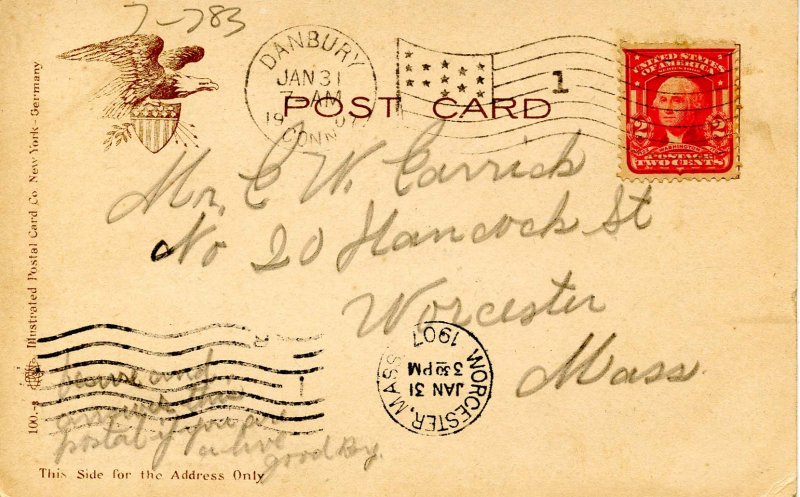 7-783
DANBURY
JAN 31
7-AM
1907
CONN.
1
UNITED STATES
OF AMERICA
2 2
WASHINGTON
POSTAGE
TWO CENTS
POST CARD
Mr. C W. Carrick
No 20 Hancock St
Worcester
Mass.
WORCESTER, MASS.
JAN 31
3 30 PM
1907
please and
answer this
postal if you are
alive
good By.
This Side for the Address Only
100.- Illustrated Postal Card Co. New York - Germany